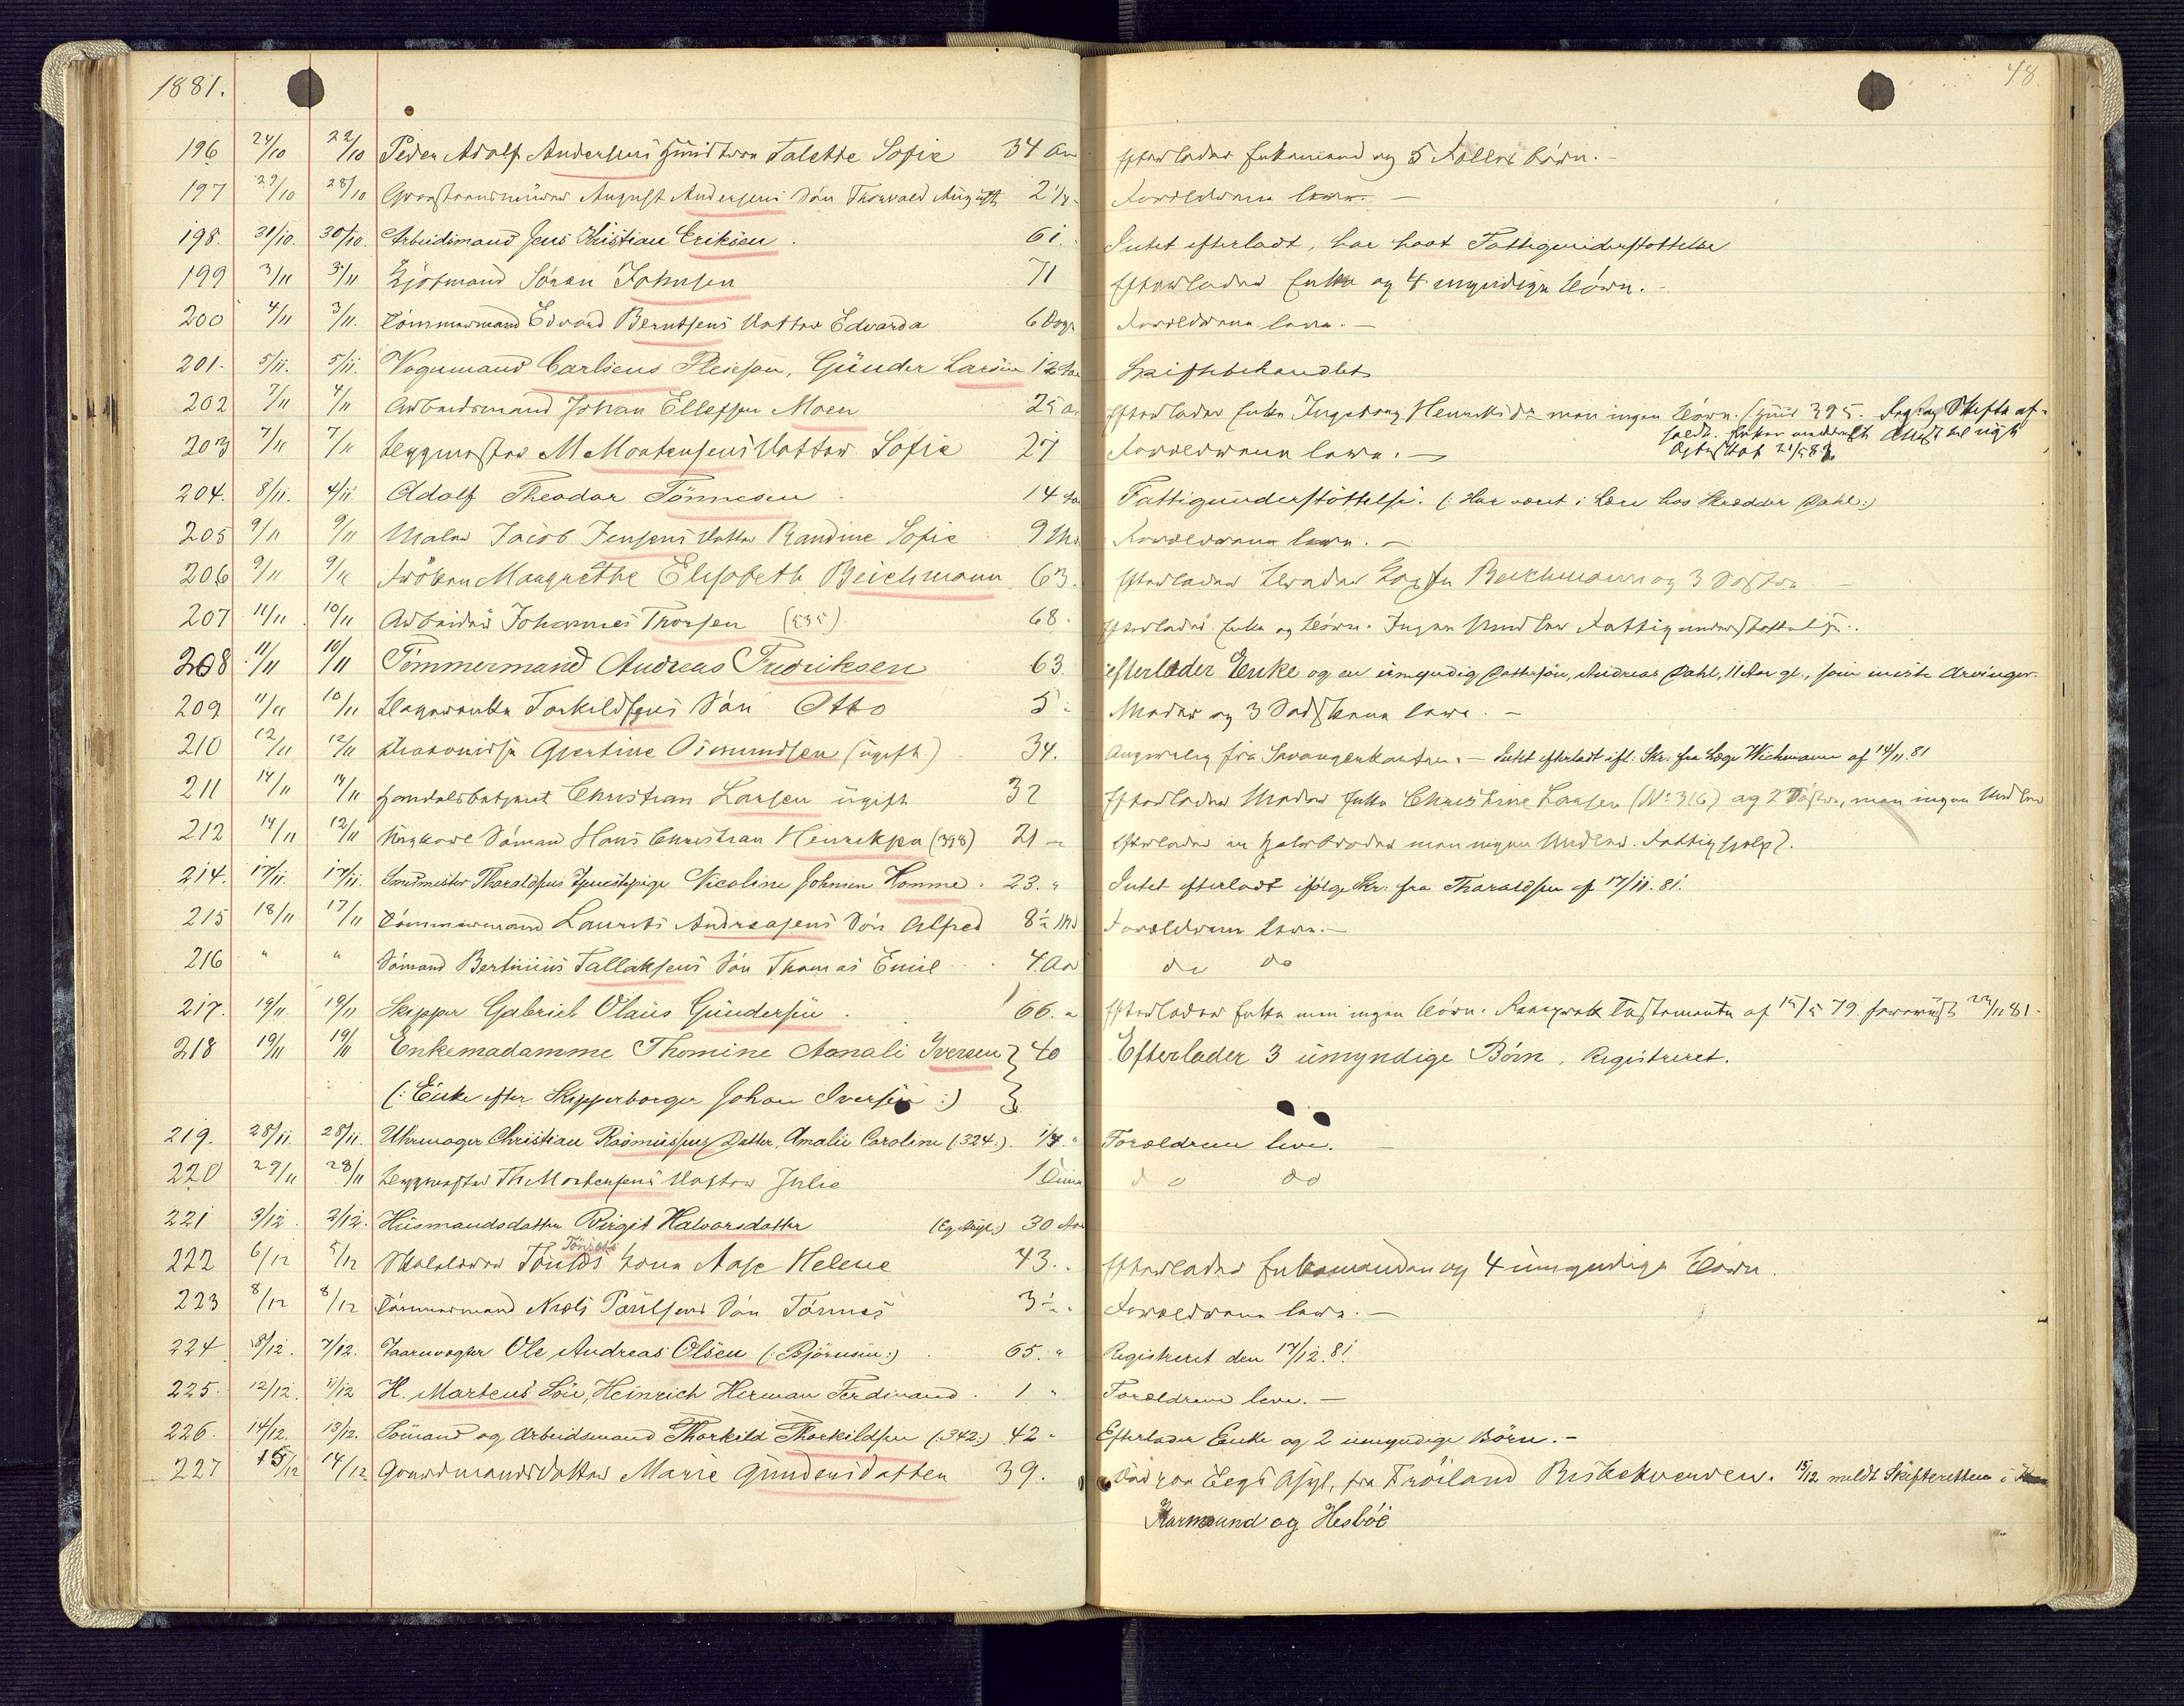 1881. 48
196 24/10 22/10 Peder Adolf Andersens Hustru Talette Sofie 34 Aar Efterlader Enkemand og 5 Fælles Børn. -
197 29/10 28/10 August Andersens Søn Thorvald August 2 1/4 Forældrene leve. -
198. 31/10. 30/10. Arbeidsmand Jens Kristian Eriksen. 61. Intet efterladt, har havt Fattigunderstøttelse
199 3/11 3/11 Kjøbmand Søren Johnsen 71 Efterlader Enke og 4 umyndige Børn. -
200 4/11 3/11. Tømmermand Edvard Berntsens Datter Edvarda 6 Dage Forældrene leve. -
201. 5/11. 5/11. Vognmand Carlsens Pleiesøn, Gunder Larsen 12 Aar Skiftebehandlet
202 7/11 4/11 Arbeidsmand Johan Ellefsen Moen 25 A. Efterlader Enke Ingeborg Henriksdr men ingen Børn. (Huus 395. Reg. og Skifte af-
holdt. Enken meddelt Attest til nyt
Ægteskab 21/5 82
203 7/11 7/11 Byggmester M Mortensens Datter Sofie 27 Forældrene leve. -
204. 8/11. 4/11 Adolf Theodor Tønnesen. 14 Aar Fattigunderstøttelse. (: Har været i Lære hos Skrædder Dahl :)
205 9/11 9/11 Maler Jacob Jensens Datter Randine Sofie 9 Md. Forældrene leve. -
206 9/11 9/11 Frøken Margrethe Elisabeth Beichmann 63. Efterlader Broder Beichmann og 3 Søstre
207 11/11. 10/11 Arbeider Johannes Thorsen (535). 68. Efterlader Enke og Børn. Ingen Midler Fattigunderstøttelse.
208 11/11 10/11 Tömmermand Andreas Fredriksen 63. efterlader Enke og en umyndig Dattersøn, Andreas Dahl, 11 Aar gl., som eneste Arvinger.
209 11/11 10/11 Torkildsens Søn Otto 5. Moder og 3 Sødskende leve. -
210 12/11 12/11 Gjertine Osmundsen (ugift) 34. Angivelig fra Stavangerkanten. - Intet efterladt ifl. Skr. fra Læge Wichmann af 14/11. 81
211 14/11 14/11 Handelsbetjent Christian Larsen ugift 32 Efterlader Moder Enke Christine Larsen (No 316) og 2 Søstre, men ingen Midler
212 14/11 12/11 Ungkarl Sømand Hans Christian Henriksen (398) 21 - Efterlader en Halvbroder men ingen Midler. Fattighjelp?.
214. 17/11. 17/11. Smedmester Tharaldsens Tjenestepige Nicoline Johnsen Homme. 23. " Intet efterladt ifølge Skr. fra Tharaldsen af 17/11. 81.
215 18/11 17/11 Tømmermand Laurits Andreasens Søn Alfred 8 1/2 Md Forældrene leve. -
216 " " Sømand Bertinius Tallaksens Søn Thomas Emil. 4 Aar do do
217. 19/11. 19/11 Skipper Gabriel Olaus Gundersen. 66. " Efterlader Enke men ingen Børn. Testamente af 15/5 79. 23/11 81.
218 19/11 19/11 Enkemadamme Thomine Aanali Iversen } 40 Efterlader 3 umyndige Børn. Registreret.
(: Enke efter Skipperborger Johan Iversen :) }
219. 28/11. 28/11. Uhrmager Christian Rasmussens Datter, Amalie Caroline (:324:). 1/4 " Forældrene leve.
220 29/11 28/11 Byggmester Th Mortensens Datter Julie 1 Time do do
221 3/12. 2/12. Husmandsdatter Birgit Halvorsdatter (Eg Asyl:) 30 Aar
222 6/12 5/12 Skolelærer Tønnes's Kone Aase Helene 43. " Efterlader Enkemanden og 4 umyndige Børn.
223 8/12 8/12 Tømmermand Niels Paulsens Søn Tønnes 3 1/2 " Forældrene leve. -
224 8/12. 7/12. Taarnvægter Ole Andreas Olsen (: Bjørnsen :). 65. " Registreret den 17/12. 81.
225. 12/12. 11/12 H. Martens Søn, Heinrich Herman Ferdinand. 1 " Forældrene leve. -
226. 14/12. 13/12. Sømand og Arbeidsmand Thorkild Thorkildsen (:342:) 42 " Efterlader Enke og 2 umyndige Børn. -
227 15/12 14/12 Gaardmandsdatter Marie Gundersdatter 39. Død paa Eegs Asyl, fra Frøiland 15/12 meldt Skifteretten i
Karmsund og Hesbø